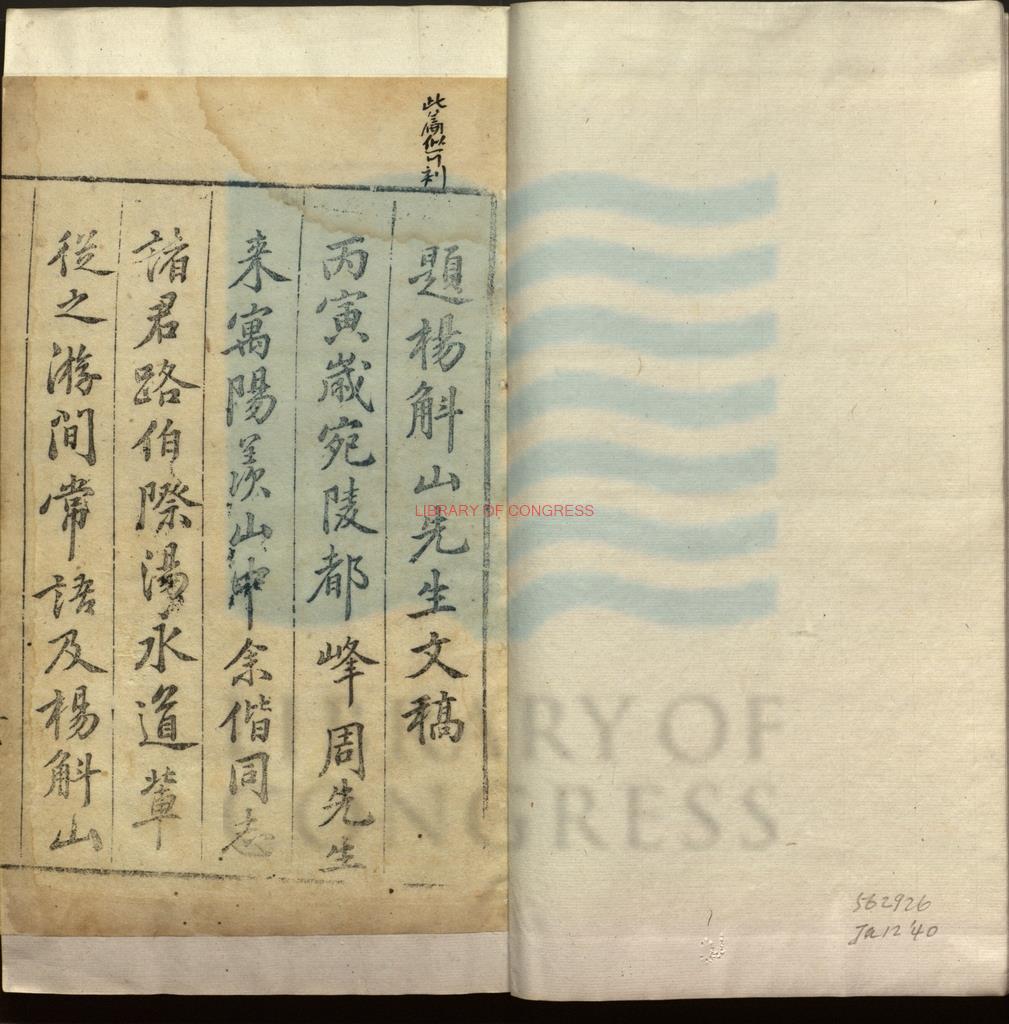 此篇似可刻
題楊斛山先生文稿
丙寅歲宛陵都峰周先生
来寓陽羨山中余偕同志
諸君路伯際湯永道輩
從之游間常語及楊斛山
LIBRARY OF CONGRESS
LIBRARY OF
CONGRESS
562926
Ja 12 '40